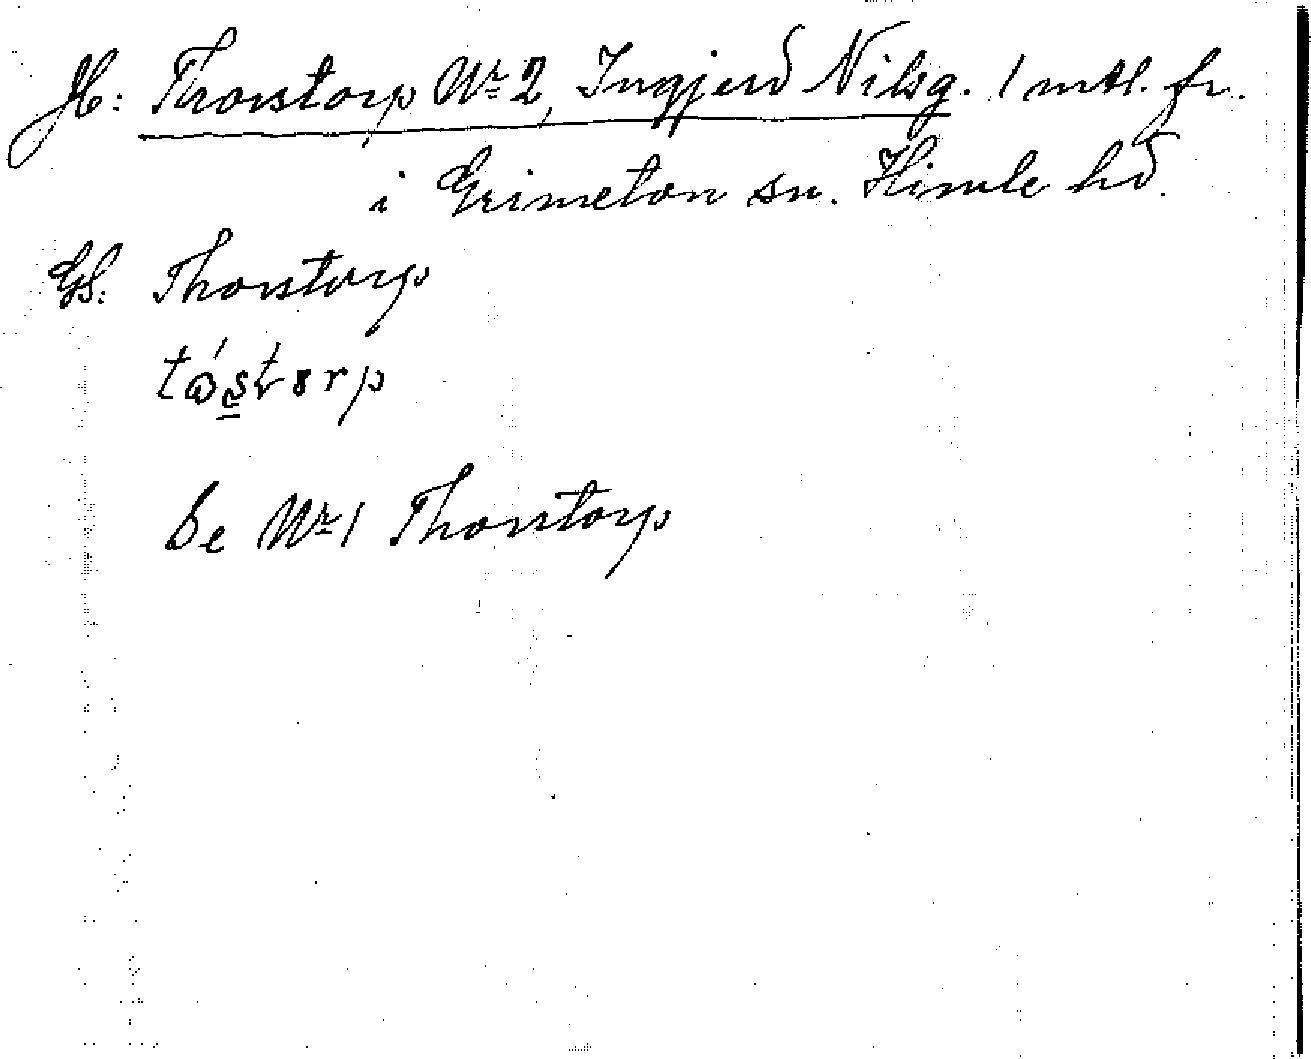 H: Thorstorp Nr 2, Ingjerd Nilsg. 1 mtl. fr.
i Grimeton sn. Himle hd.
GS. Thorstorp
Se Nr 1 Thorstorp